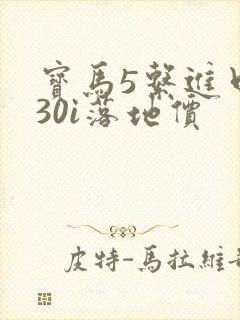 寶馬5繫進口
30i落地價
皮特-馬拉維奇